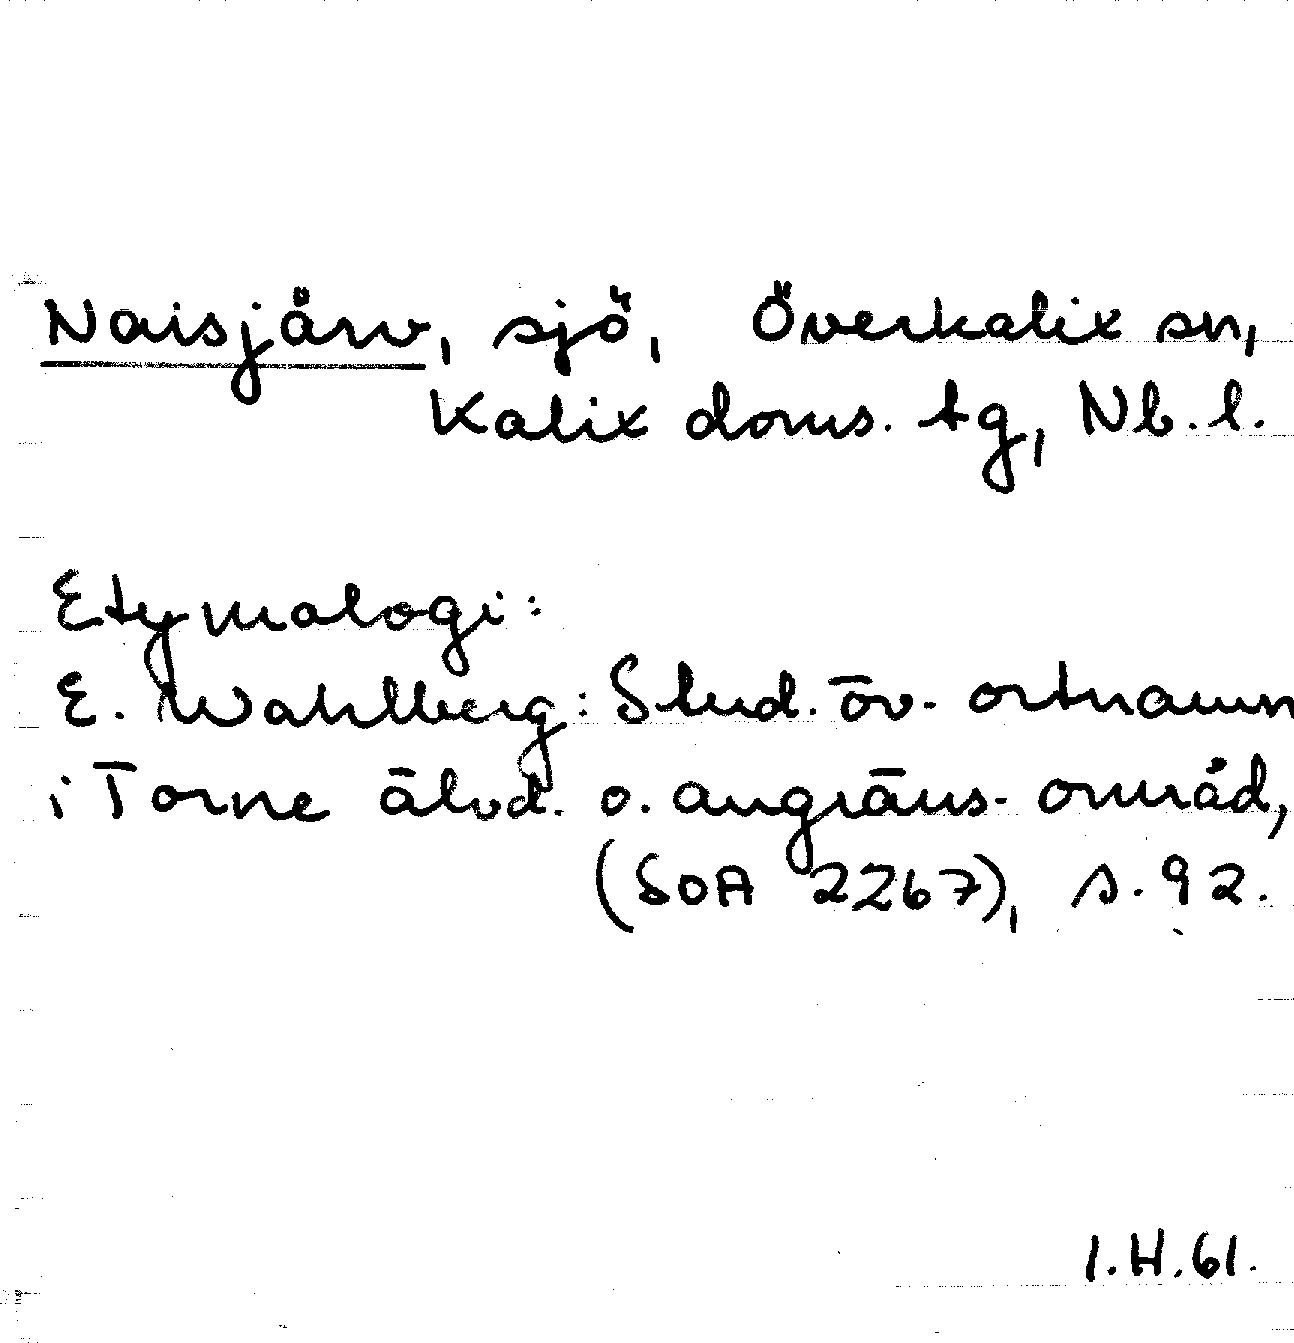 Naisjärv, sjö, Överkalix sn,
Kalix doms. tg, Nb. l.
Etymologi:
E. Wahlberg: Stud. öv. ortnamn
i Torne älvd. o. angräns. områd,
(SOA 2267), s. 92.
I.H.61.